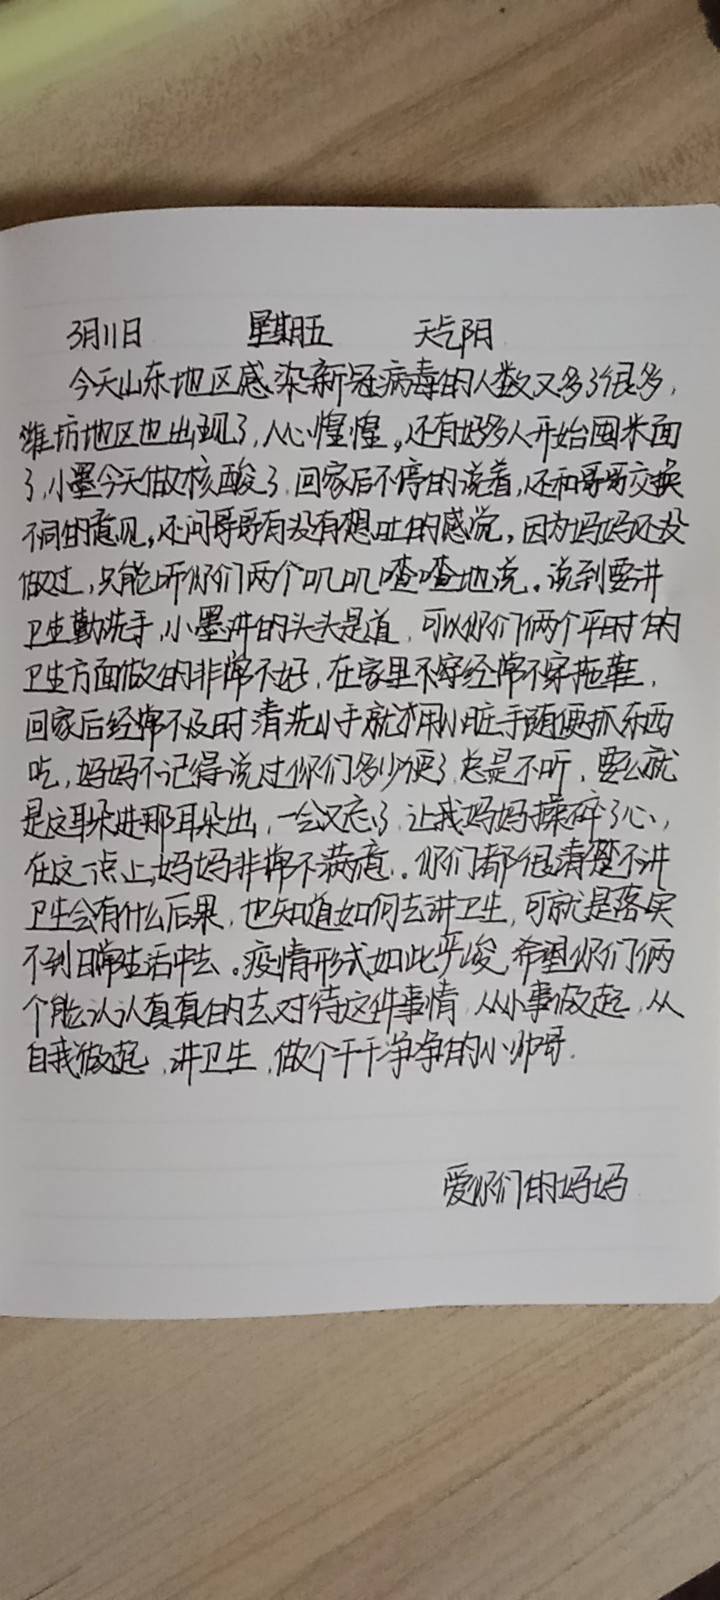 3月11日 星期五 天气阴
今天山东地区感染新冠病毒的人数又多了很多,
潍坊地区也出现了,人心惶惶。还有好多人开始囤米面
了,小墨今天做核酸了,回家后不停的说着,还和哥哥交换
不同的意见。还问哥哥有没有想吐的感觉,因为妈妈还没
做过,只能听你们两个叽叽喳喳地说。说到要讲
卫生勤洗手,小墨讲的头头是道,可以你们俩个平时的
卫生方面做的非常不好,在家里不穿经常不穿拖鞋,
回家后经常不及时清洗小手就才用小脏手随便抓东西
吃,妈妈不记得说过你们多少便了,总是不听,要么就
是这耳朵进那耳朵出,一会又忘了,让我妈妈操碎了心,
在这一点上,妈妈非常不满意。你们都很清楚不讲
卫生会有什么后果,也知道如何去讲卫生,可就是落实
不到日常生活中去。疫情形式如此严峻,希望你们俩
个能认认真真的去对待这件事情,从小事做起,从
自我做起,讲卫生,做个干干净净的小帅哥.
爱你们的妈妈